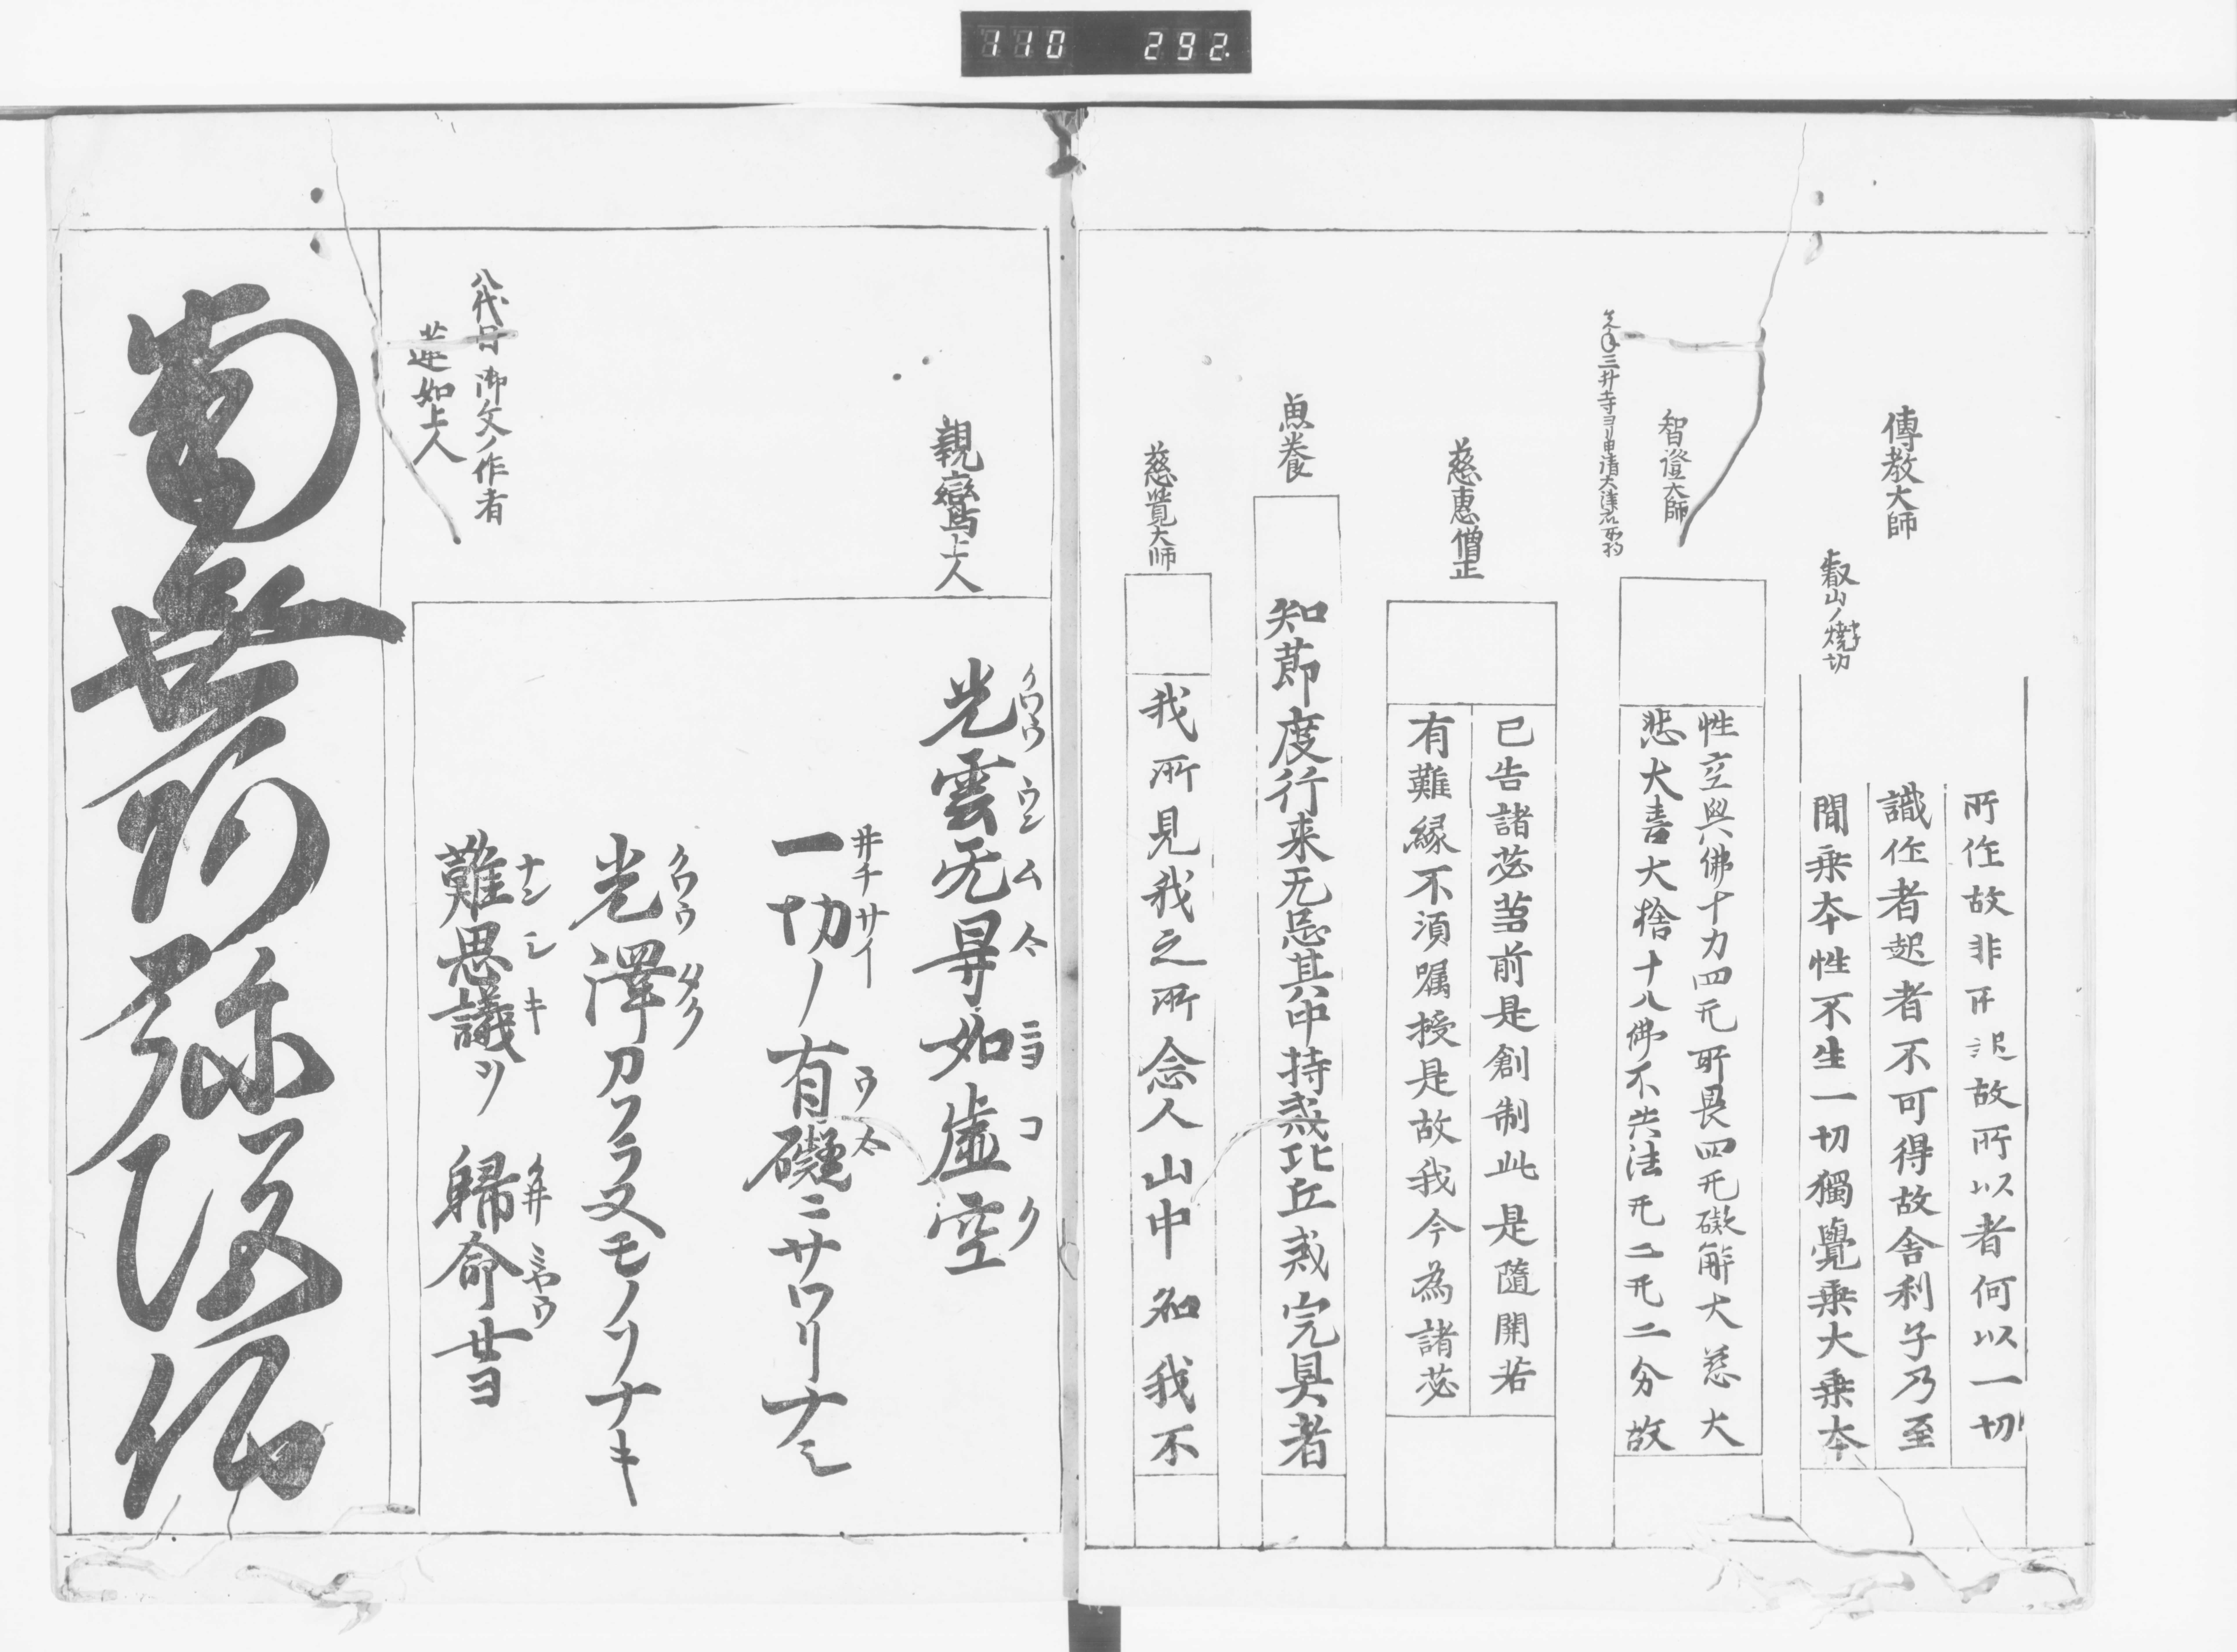 110 292
傳教大師
叡山ノ燒切
所作故非所起故所以者何以一切
識作者起者不可得故舍利子乃至
聞乗本性不生一切獨覺乗大乗本
智證大師
性空與佛十力四无所畏四无礙解大慈大
悲大喜大捨十八佛不共法无二无二分故
慈惠僧正
已告諸苾芻前是創制此是隨開若
有難緣不須嘱授是故我今為諸苾
魚養
知節度行来无忌其中持戒比丘戒完具者
慈覺大师
我所見我之所念人山中名我不
親鸞上人
光雲无㝵如虚空
一切ノ有礙ニサワリナシ
光澤カフラヌモノソナキ
難思議ヲ歸命セヨ
八代目御文ノ作者
蓮如上人
南無阿弥陀仏